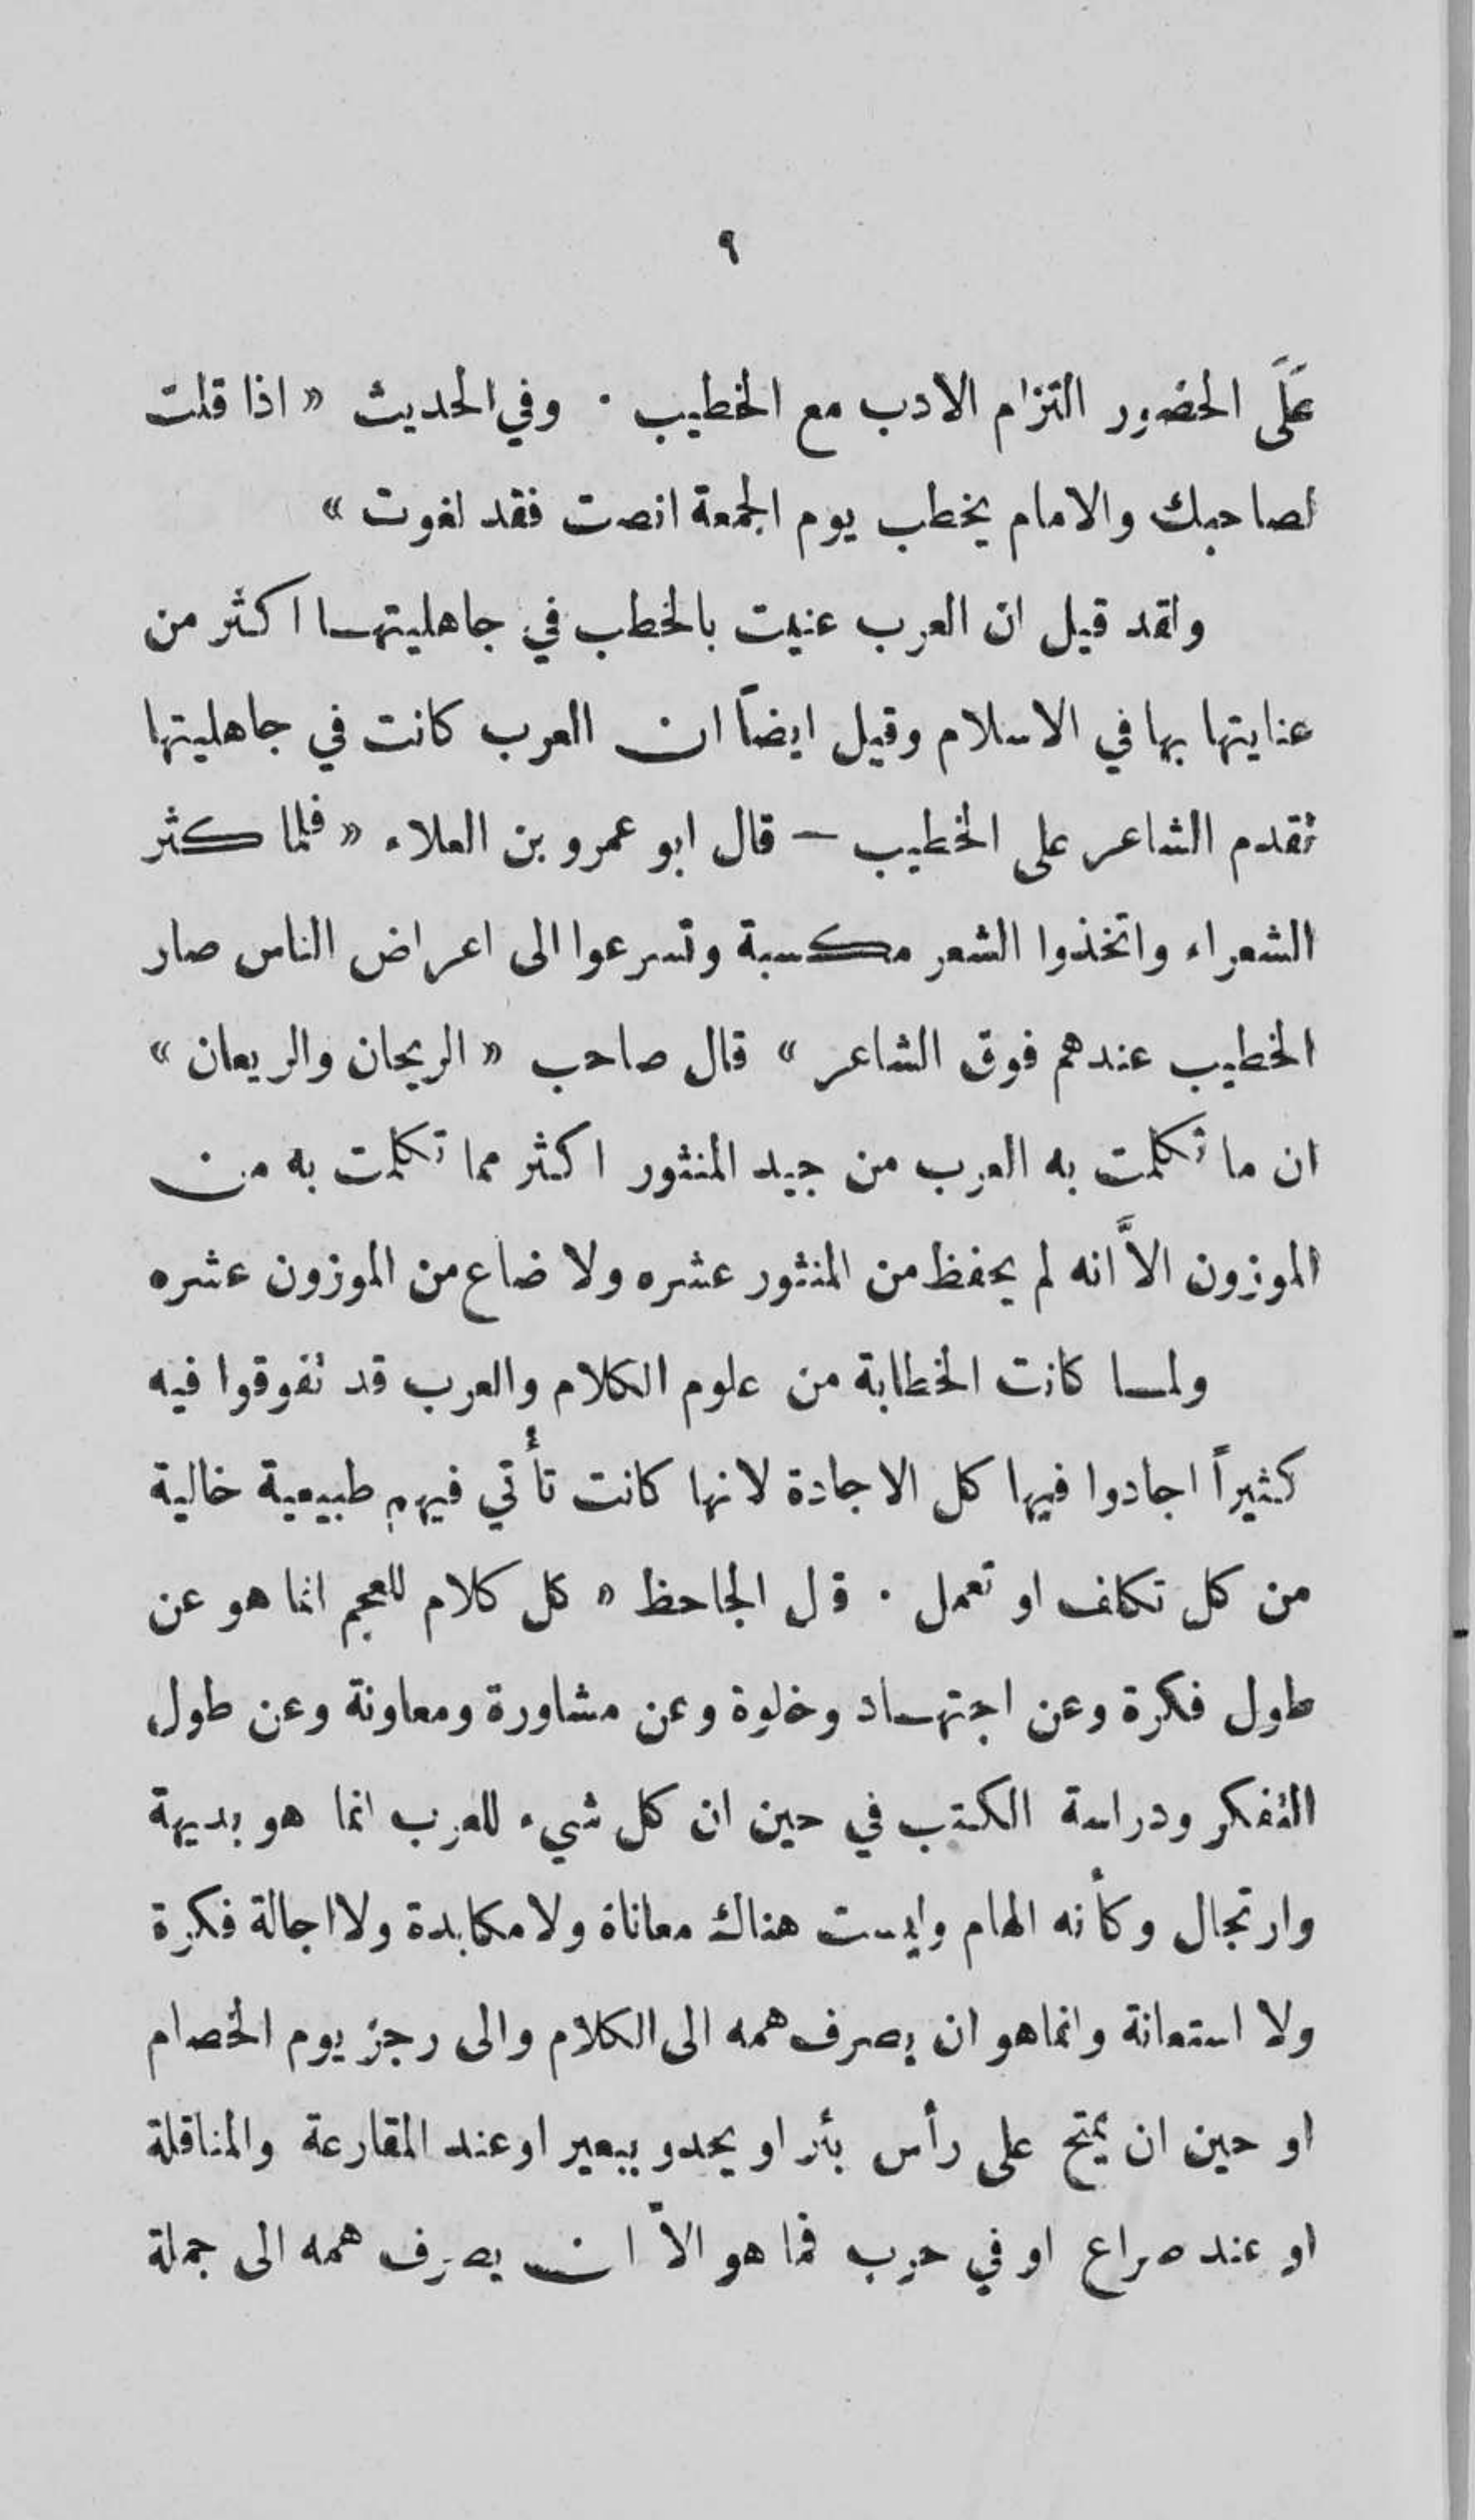 ٩
عَلَى الحضور التزام الادب مع الخطيب . وفي الحديث « اذا قلت
لصاحبك والامام يخطب يوم الجمعة انصت فقد لغوت »
ولقد قيل ان العرب عنيت بالخطب في جاهليتهـا اكثر من
عنايتها بها في الاسلام وقيل ايضاً ان العرب كانت في جاهليتها
تقدم الشاعر على الخطيب — قال ابو عمرو بن العلاء « فلما كثر
الشعراء واتخذوا الشعر مكسبة وتسرعوا الى اعراض الناس صار
الخطيب عندهم فوق الشاعر » قال صاحب « الريحان والريعان »
ان ما تكلمت به العرب من جيد المنثور اكثر مما تكلمت به من
الموزون الاَّ انه لم يحفظ من المنثور عشره ولا ضاع من الموزون عشره
ولمـا كانت الخطابة من علوم الكلام والعرب قد تفوقوا فيه
كثيراً اجادوا فيها كل الاجادة لانها كانت تأْتي فيهم طبيعية خالية
من كل تكلف او تعمل . قال الجاحظ « كل كلام للعجم انما هو عن
طول فكرة وعن اجتهـاد وخلوة وعن مشاورة ومعاونة وعن طول
التفكر ودراسة الكتب في حين ان كل شيء للعرب انما هو بديهة
وارتجال وكأنه الهام وليست هناك معاناة ولا مكابدة ولا اجالة فكرة
ولا استعانة وانما هو ان يصرف همه الى الكلام والى رجز يوم الخصام
او حين ان يمتح على رأس بئر او يحدو ببعير او عند المقارعة والمناقلة
او عند صراع او في حرب فما هو الاَّ ان يصرف همه الى جملة